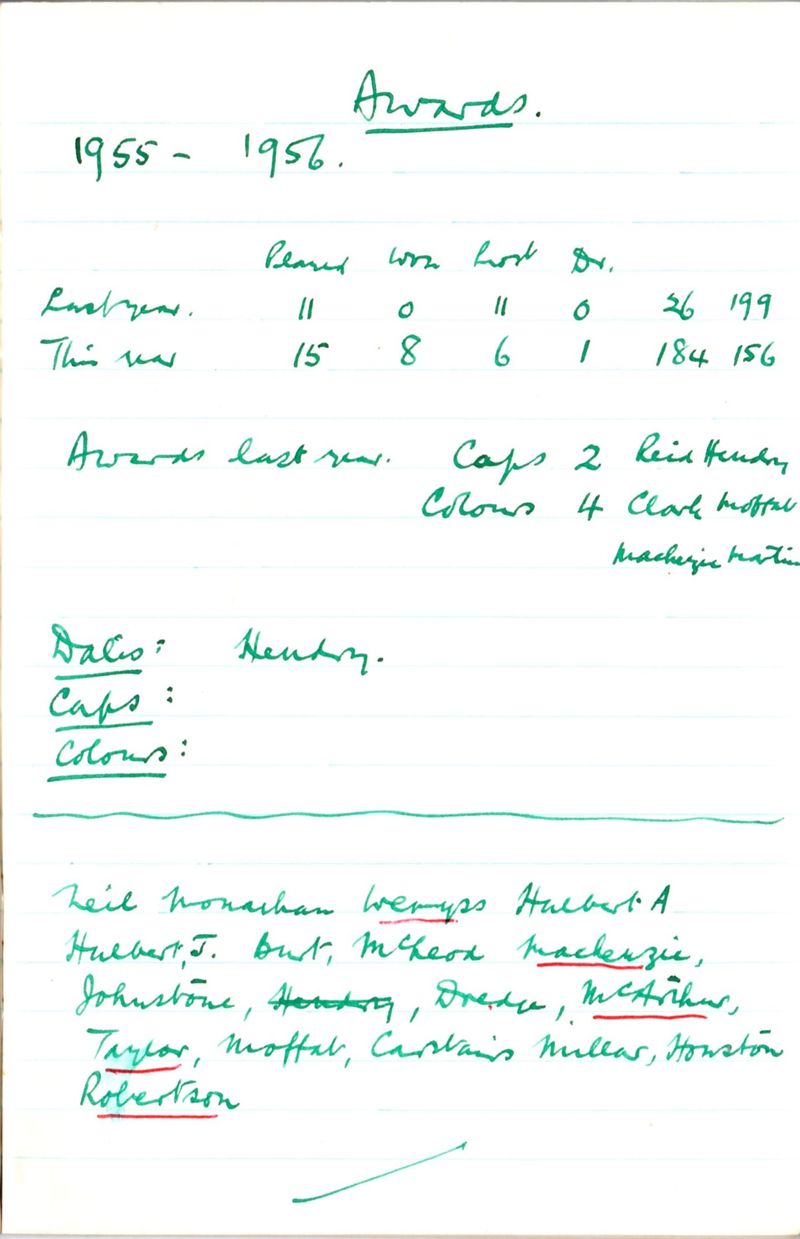 Awards.
1955 - 1956.
Played Won Lost Dr.
Last year. 11 0 11 0 26 199
This year 15 8 6 1 184 156
Awards last year. Caps 2 Reid Hendry
Colours 4 Clark Moffat
Mackenzie Martin
Hendry.
Caps :
Colours :
Neil Monachan Wemyss Hulbert A
Hulbert, J. Burt, McLeod Mackenzie,
Johnstone, Hendry, Dredge, McArthur,
Taylor, Moffat, Carstairs Millar, Houston
Robertson